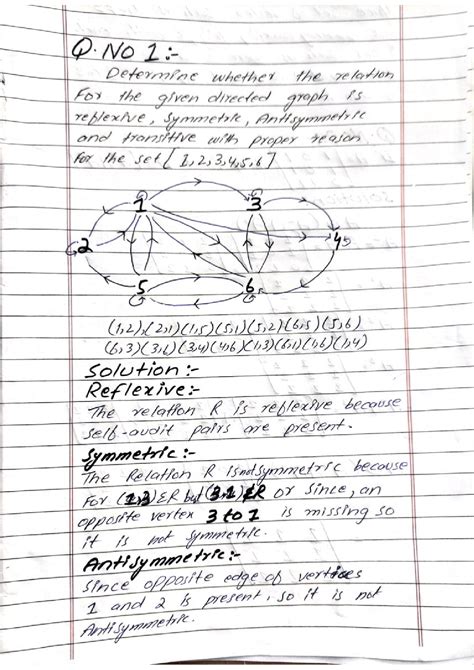 Q. No 1:-
Determine whether the relation
For the given directed graph is
reflexive, symmetric, Antisymmetric
and transitive with proper reason
for the set [1,2,3,4,5,6]
1 3
2 4
5 6
(1,2),(2,1)(1,5)(5,1)(5,2)(6,5)(5,6)
(6,3)(3,6)(3,4)(4,6)(1,3)(6,1)(1,6)(1,4)
Solution :-
Reflexive:-
The relation R is reflexive because
self-audit pairs are present.
Symmetric:-
The Relation R is not symmetric because
For (1,3)ƐR but (3,1)ɆR or Since, an
opposite vertex 3 to 1 is missing so
it is not symmetric.
Antisymmetric:-
Since opposite edge of vertices
1 and 2 is present, so it is not
Antisymmetric.